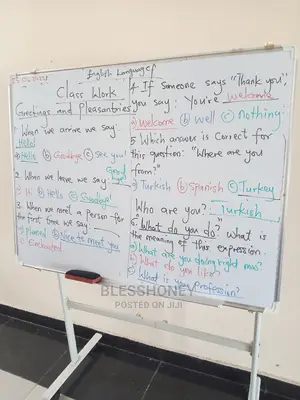 English Language
Class Work
Greetings and Pleasantries
1. When we arrive we say:
Hello!
a) Hello b) Goodbye c) See you!
2. When we leave we say:
Good
a) Hi b) Hello c) Goodbye!
3. When we meet a person for
the first time, we say:
a) b) Nice to meet you
c) Enchanted
4. If Someone says "Thank you",
you say: You're welcome
a) Welcome b) well c) nothing
5. Which answer is correct for
this question: "Where are you
from?"
a) Turkish b) Spanish c) Turkey
Who are you? Turkish
6. "What do you do?" What is
the meaning of this expression.
a) What are you doing right now?
b) What do you like?
c) What is your Profession?
BLESSHONEY
POSTED ON JIJI